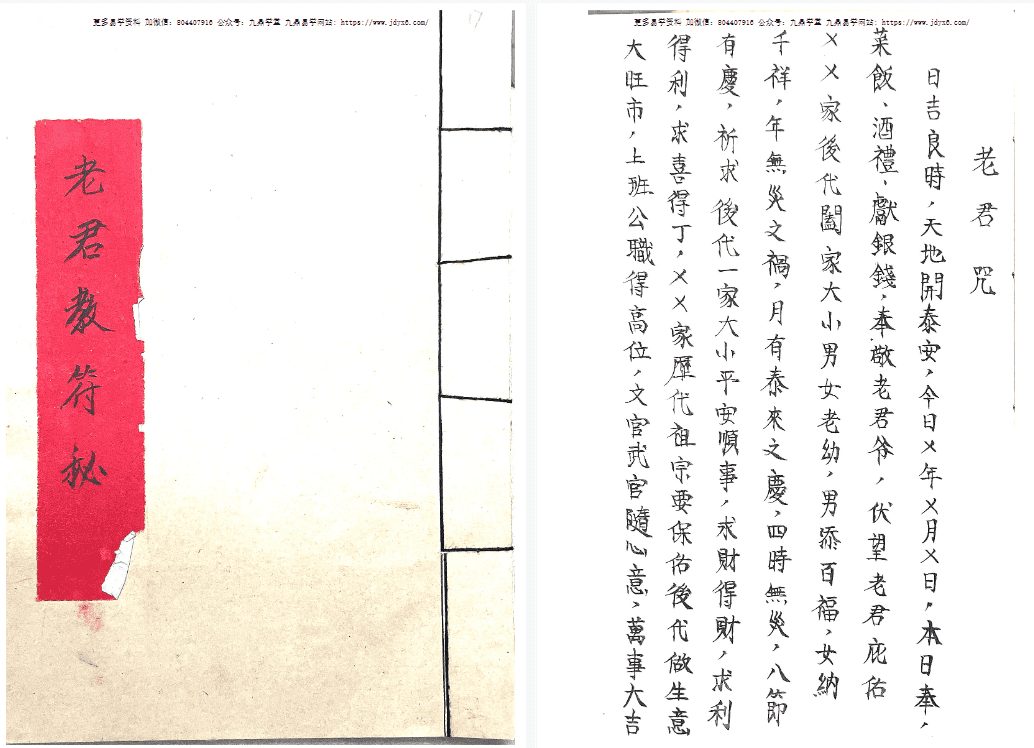 更多易学资料 加微信: 804407916 公众号: 九鼎学堂 九鼎易学网站: https://www.jdyx6.com/
老君教符秘
更多易学资料 加微信: 804407916 公众号: 九鼎学堂 九鼎易学网站: https://www.jdyx6.com/
老君咒
日吉良時，天地開泰安，今日㐅年㐅月㐅日，本日奉，
菜飯、酒禮、獻銀錢，奉敬老君爷，伏望老君庇佑
㐅㐅家後代闔家大小男女老幼，男添百福，女納
千祥，年無災之禍，月有泰來之慶，四時無災，八節
有慶，祈求後代一家大小平安順事，求財得財，求利
得利，求喜得丁，㐅㐅家歷代祖宗要保佑後代做生意
大旺市，上班公職得高位，文官武官隨心意，萬事大吉